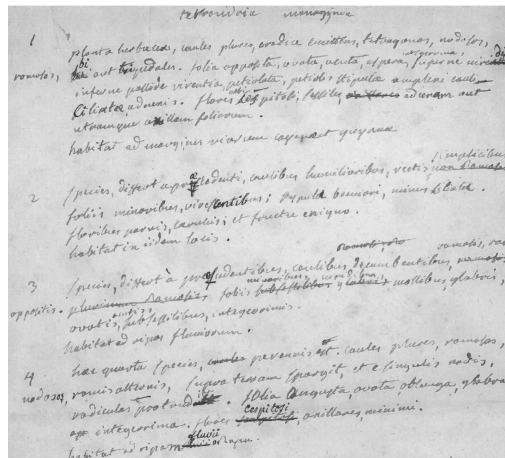 tetrandria monogynia
1 planta herbacea, caules plures, e radice emittens, tetragonos, nodosos,
ramosos, bi aut tripedales. folia opposita, ovata, acuta, aspera, integerrima, superne
inferne pallide virentia, petiolata, petiolis stipula amplexi caule
Ciliata, adnenis. flores albi, sessiles ad unam aut
utramque axillam foliorum.
habitat ad margines viarum cayennae guyanae
2 Species, differt a precedenti, caulibus humilioribus, rectis simplicibus non ramosis
foliis minoribus, virescentibus; stipula breviori, minus Ciliata.
floribus parvis, caeruleis; et fructu exiguo.
habitat in iisdem locis.
3 Species, differt à precedentibus, caulibus decumbentibus, ramosis
oppositis. foliis minoribus, mollibus, glabris,
ovatis, acutis, subsessilibus, integerrimis.
habitat ad ripas fluviorum.
4 haec quarta species, perennis est. caules plures, ramosos,
nodosos, ramis alternis, supra terram spargit, et e singulis nodis,
radiculas. folia angusta, ovata, oblonga, glabra
integerrima. flores cespitosi, axillares, minimi.
habitat ad ripam fluvii